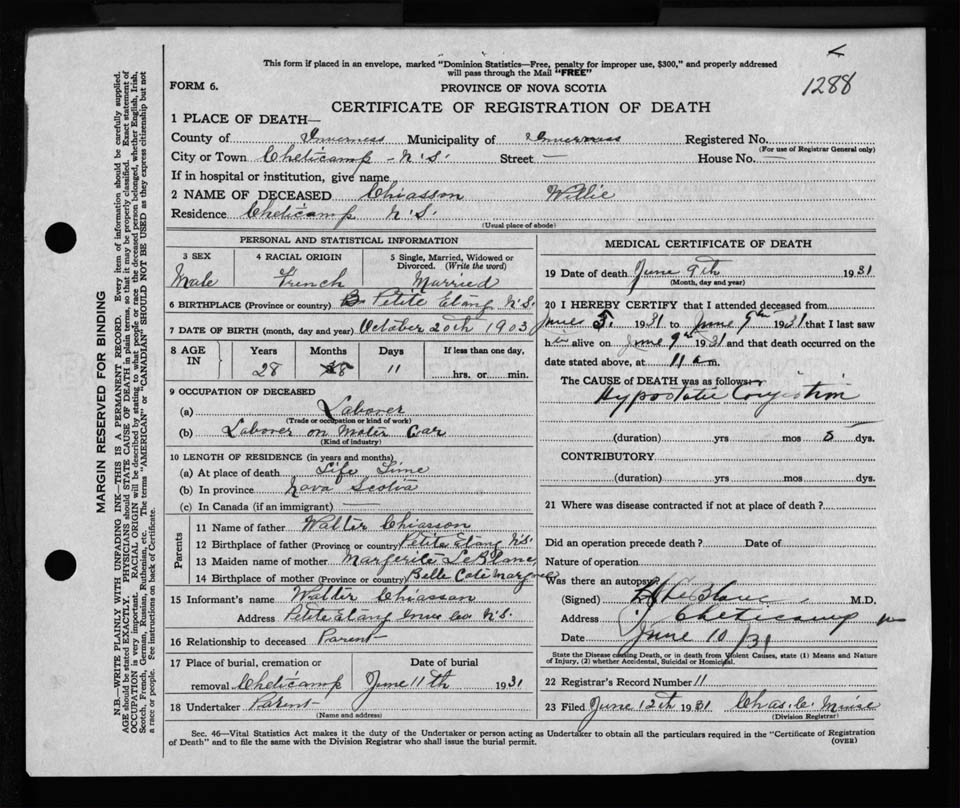 This form if placed in an envelope, marked "Dominion Statistics—Free, penalty for improper use, $300," and properly addressed
will pass through the Mail "FREE"
1288
FORM 6.
PROVINCE OF NOVA SCOTIA
CERTIFICATE OF REGISTRATION OF DEATH
1 PLACE OF DEATH—
County of Inverness Municipality of Inverness Registered No.
(For use of Registrar General only)
City or Town Cheticamp - N.S. Street — House No. —
If in hospital or institution, give name
2 NAME OF DECEASED Chiasson Willie
Residence Cheticamp N.S.
(Usual place of abode)
PERSONAL AND STATISTICAL INFORMATION
3 SEX Male
4 RACIAL ORIGIN French
5 Single, Married, Widowed or Divorced. (Write the word) Married
6 BIRTHPLACE (Province or country) Petite Etang N.S.
7 DATE OF BIRTH (month, day and year) October 20th 1903
8 AGE IN Years Months Days If less than one day,
28 8 11 hrs. or min.
9 OCCUPATION OF DECEASED
(a) Laborer
(Trade or occupation or kind of work)
(b) Laborer on Moter Car
(Kind of industry)
10 LENGTH OF RESIDENCE (in years and months)
(a) At place of death Life Time
(b) In province Nova Scotia
(c) In Canada (if an immigrant) —
Parents
11 Name of father Walter Chiasson
12 Birthplace of father (Province or country) Petite Etang N.S.
13 Maiden name of mother Marguerite LeBlanc
14 Birthplace of mother (Province or country) Belle Cote Margaree
15 Informant's name Walter Chiasson
Address Petite Etang Inver Co N.S.
16 Relationship to deceased Parent
17 Place of burial, cremation or Date of burial
removal Cheticamp June 11th 1931
18 Undertaker Parent
(Name and address)
MEDICAL CERTIFICATE OF DEATH
19 Date of death June 9th 1931
(Month, day and year)
20 I HEREBY CERTIFY that I attended deceased from
June 5. 1931 to June 9th 1931 that I last saw
him alive on June 9th 1931 and that death occurred on the
date stated above, at 11 a m
The CAUSE OF DEATH was as follows:
Hypostatic Congestion
(duration) yrs mos 5 dys.
CONTRIBUTORY
(duration) yrs mos dys.
21 Where was disease contracted if not at place of death?
Did an operation precede death? Date of
Nature of operation
Was there an autopsy
(Signed) LeBlanc M.D.
Address Cheticamp
Date June 10/31
State the Disease causing Death, or in death from Violent Causes, state (1) Means and Nature
of Injury, (2) whether Accidental, Suicidal or Homicidal.
22 Registrar's Record Number 11
23 Filed June 12th 1931 Chas. C.
(Division Registrar)
Sec. 46—Vital Statistics Act makes it the duty of the Undertaker or person acting as Undertaker to obtain all the particulars required in the "Certificate of Registration
of Death" and to file the same with the Division Registrar who shall issue the burial permit. (OVER)
MARGIN RESERVED FOR BINDING
N.B.—WRITE PLAINLY WITH UNFADING INK—THIS IS A PERMANENT RECORD. Every item of information should be carefully supplied.
AGE should be stated EXACTLY. PHYSICIANS should STATE CAUSE OF DEATH in plain terms, so that it may be properly classified. Exact statement of
OCCUPATION is very important. RACIAL ORIGIN will be described by stating to what people or race the deceased person belonged, whether English, Irish,
Scotch, French, German, Russian, Ruthenian, etc. The terms "AMERICAN" or "CANADIAN" SHOULD NOT BE USED as they express citizenship but not
a race or people. See instructions on back of Certificate.